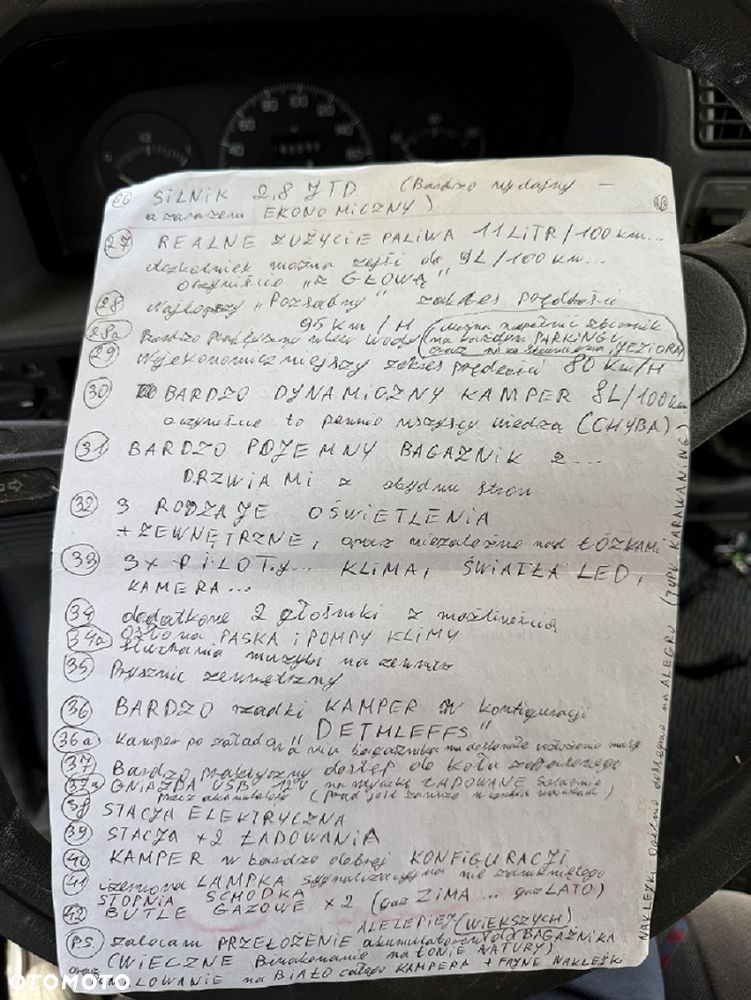 26 SILNIK 2,8 JTD (Bardzo wydajny –
a zarazem EKONOMICZNY)
27 REALNE ZUŻYCIE PALIWA 11 LITR/100 km...
aczkolwiek można zejść do 9L/100 km...
oczywiście „z GŁOWĄ"
28 Najlepszy „POZSĄDNY" zakres prędkości
95 km/H
28a Bardzo praktyczny wlew wody (można napełnić zbiornik
na każdym PARKINGU
oraz JEZIORA)
29 Najekonomiczniejszy zakres prędkości 80 km/H
30 BARDZO DYNAMICZNY KAMPER 8L/100 km
oczywiście to pewnie wszyscy wiedzą (CHYBA)
31 BARDZO POJEMNY BAGAŻNIK z...
DRZWIAMI z obydwu stron
32 3 RODZAJE OŚWIETLENIA
+ ZEWNĘTRZNE, oraz niezależne nad ŁÓŻKAMI
33 3x PILOTy... KLIMA, ŚWIATŁA LED,
KAMERA...
34 dodatkowe 2 głośniki z możliwością
34a OSŁONA PASKA i POMPY KLIMY
słuchania muzyki na zewnątrz
35 Prysznic zewnętrzny
36 BARDZO rzadki KAMPER w konfiguracji
„DETHLEFFS"
36a Kamper po załadowaniu bagażnika ma doskonale rozłożoną masę
37 Bardzo praktyczny dostęp do koła zapasowego
37a GNIAZDA USB 12V na ŁADOWANE
przez akumulatory (prąd jest zawsze)
38 STACJA ELEKTRYCZNA
39 STACJA x2 ŁADOWANIA
40 KAMPER w bardzo dobrej KONFIGURACJI
41 czerwona LAMPKA sygnalizacyjna nie zamkniętego
STOPNIA SCHODKA
42 BUTLE GAZOWE x2 (gaz ZIMA... gaz LATO)
ALE LEPIEJ (WIĘKSZYCH)
P.S zalecam PRZEŁOŻENIE akumulatorów do BAGAŻNIKA
(WIECZNE Biwakowanie na ŁONIE NATURY)
oraz MALOWANIE na BIAŁO całego KAMPERA + FAJNE NAKLEJKI
NAKLEJKI ogólnie dostępne na ALEGRO (TYPU KARAWANING)
OTOMOTO